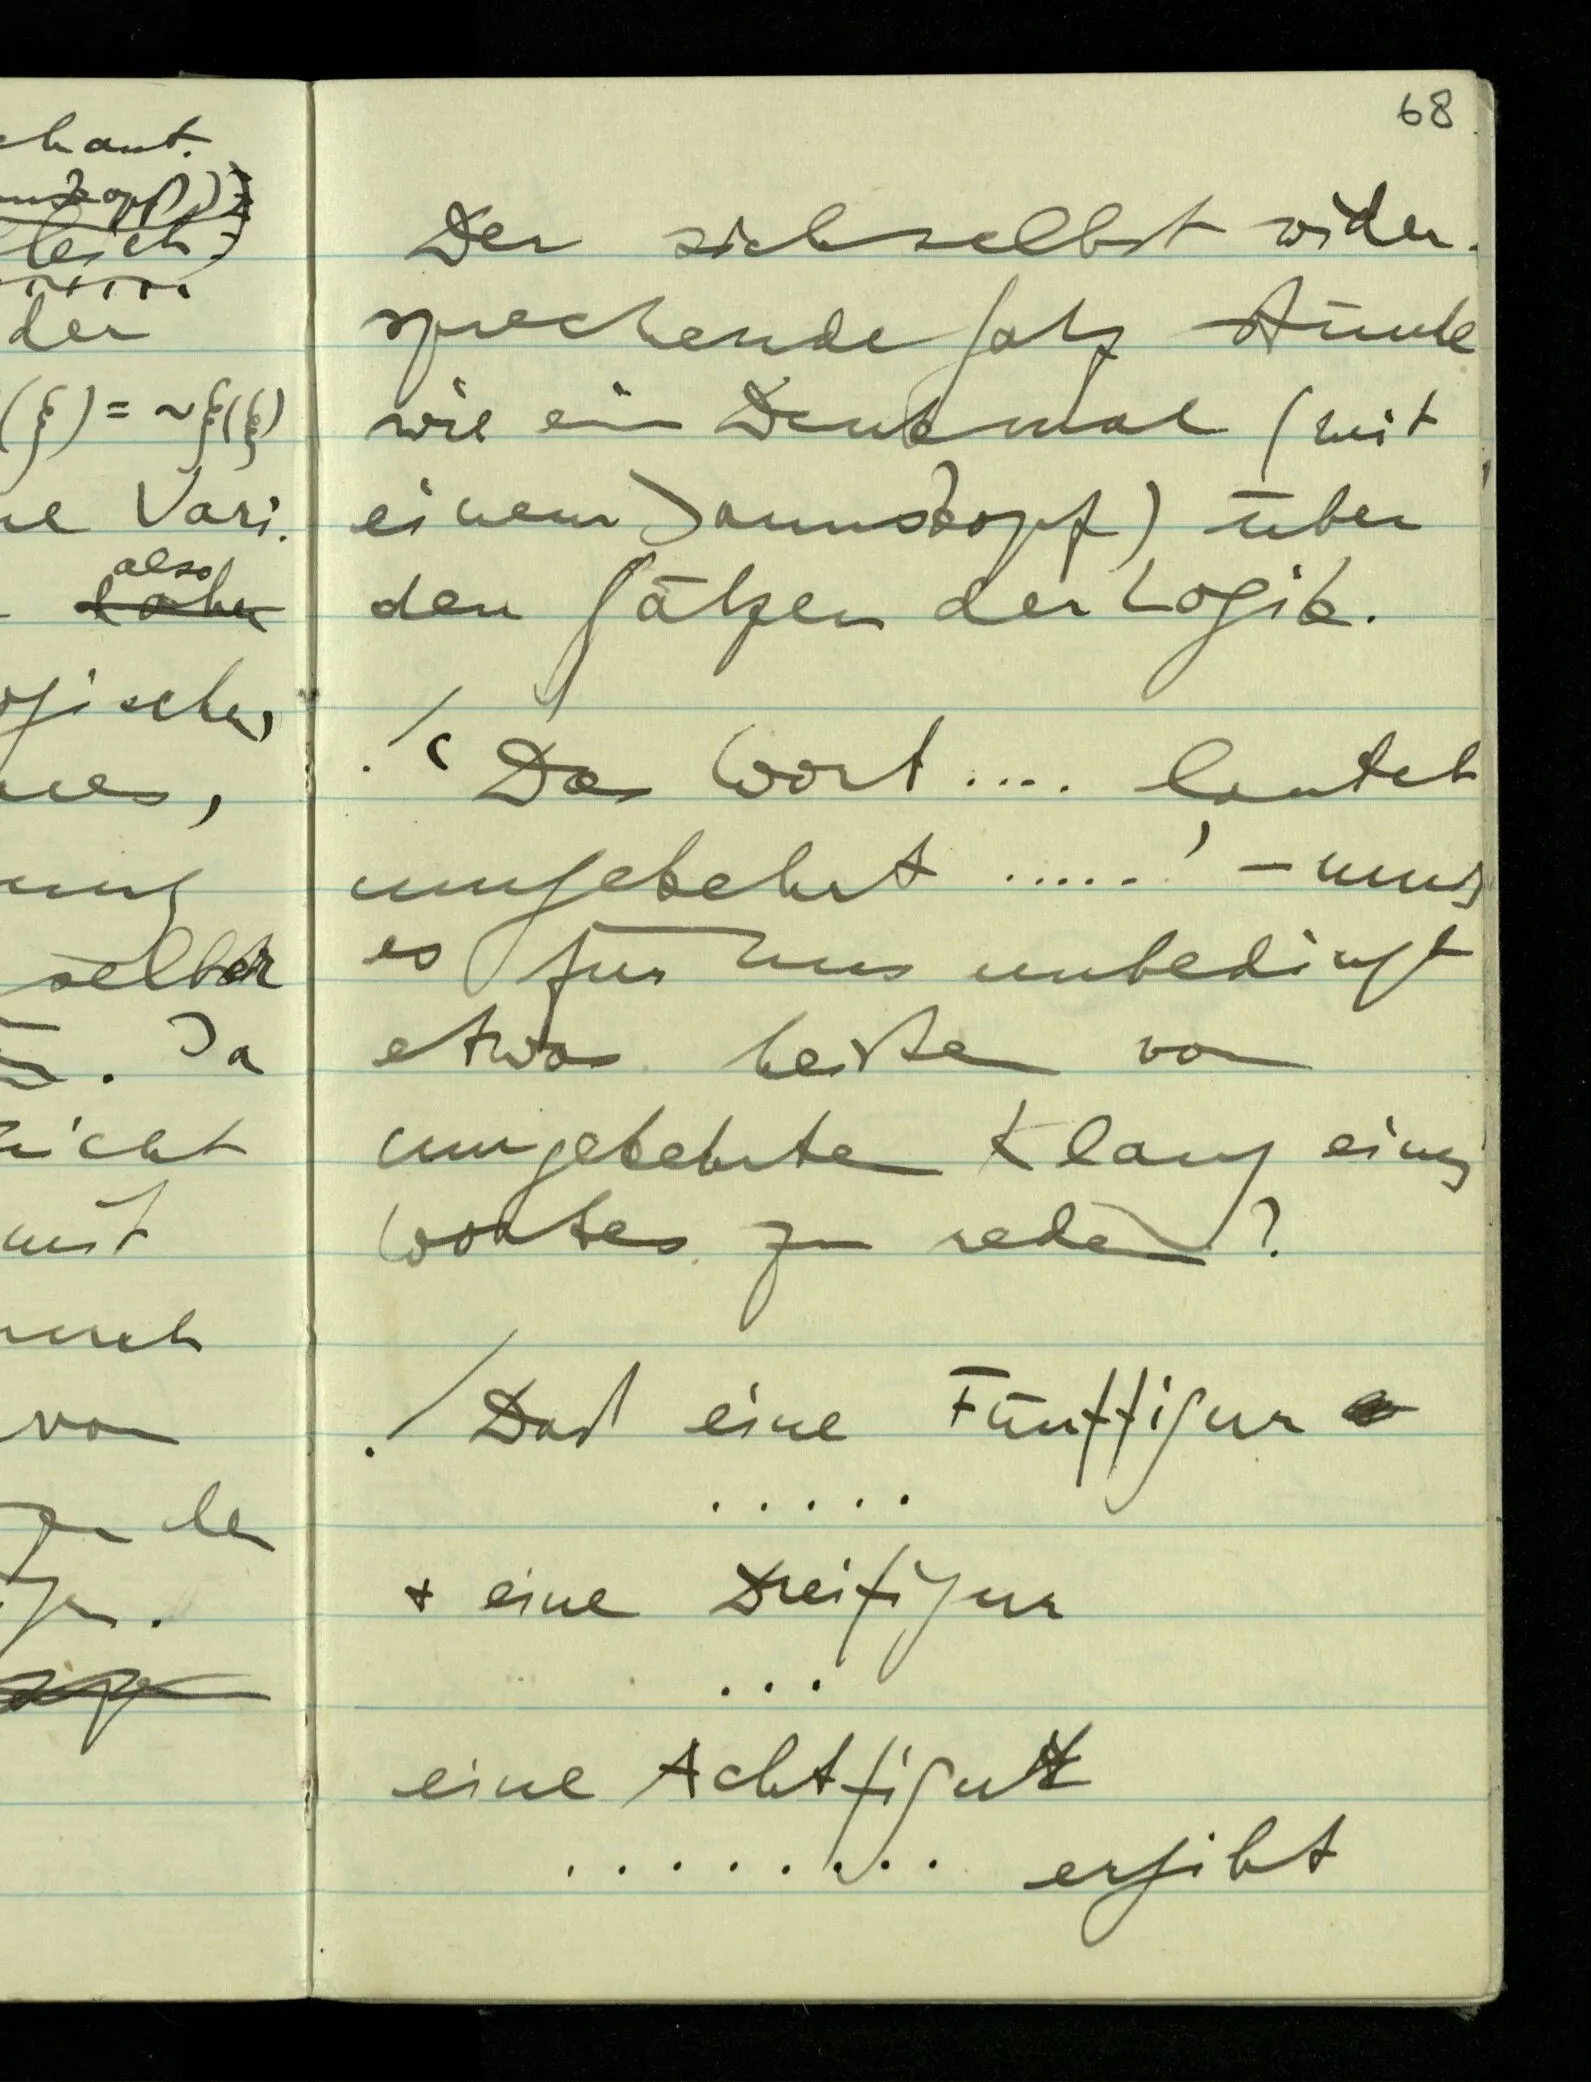 chant.
leich
der
(ξ) = ~ξ(ξ)
ne Vari.
also
daher
ogischen,
nes,
ung
selbst
. Ja
nicht
mit
von
68
Der sich selbst wider-
sprechende Satz stünde
wie ein Denkmal (mit
einem Januskopf) über
den Sätzen der Logik.
./ ‘Das Wort .... lautet
umgekehrt .....’ – muß
es für uns unbedingt
etwas heißen von
umgekehrten Klang eines
Wortes zu reden?
./ Daß eine Fünffigur
. . . . .
+ eine Dreifigur
. . .
eine Achtfigur
. . . . . . . . ergibt